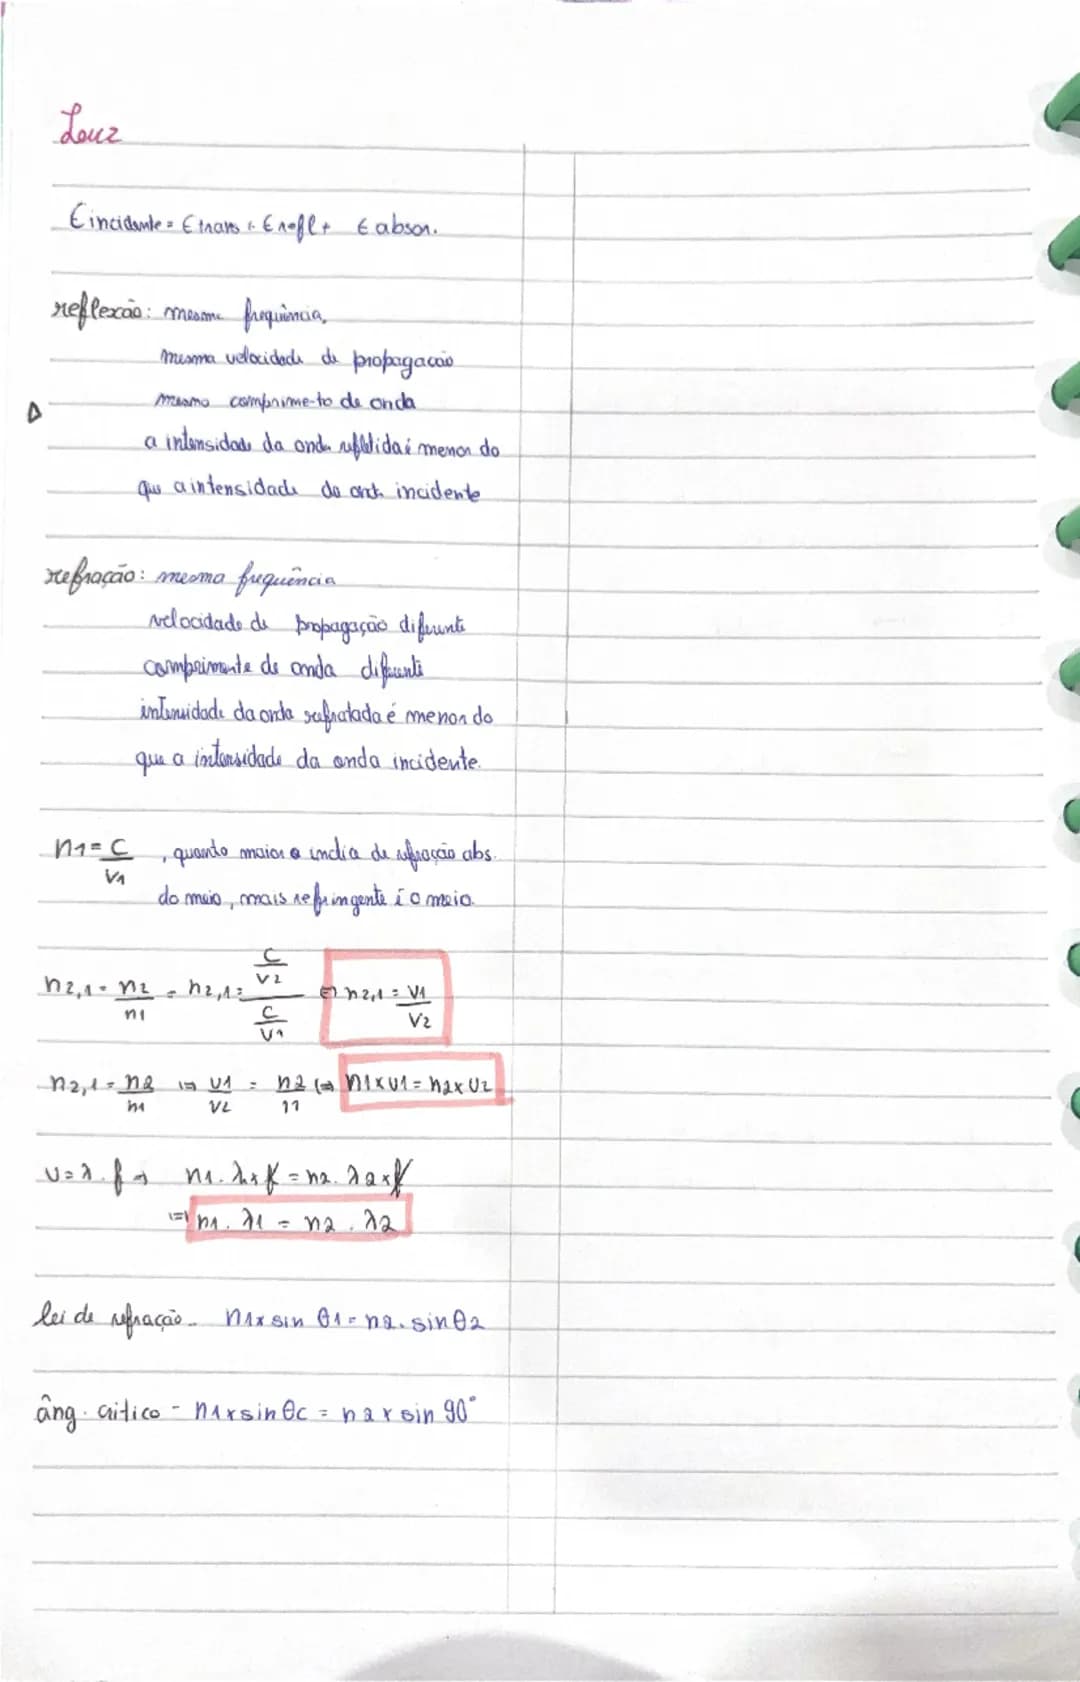 Luz
Eincidente = Etrans + Erefl + Eabsor.
reflexão: mesma frequência,
mesma velocidade de propagação
mesmo comprime-to de onda
a intensidade da onda refletida é menor do
que a intensidade da onda incidente
refração: mesma frequência
velocidade de propagação diferente
comprimento de onda diferente
intensidade da onda refratada é menor do
que a intensidade da onda incidente.
n1 = C/V1 , quanto maior o índice de refração abs.
do meio, mais refringente é o meio.
n2,1 = n2/n1 = n2,1 = (C/V2)/(C/V1) ⇔ n2,1 = V1/V2
n2,1 = n2/n1 ⇔ V1/V2 = n2/n1 ⇔ n1 x v1 = n2 x v2
v = λ . f → n1 . λ1 x f = n2 . λ2 x f
⇔ n1 . λ1 = n2 . λ2
lei de refração - n1 x sin θ1 = n2 . sin θ2
âng. crítico - n1 x sin θc = n2 x sin 90°